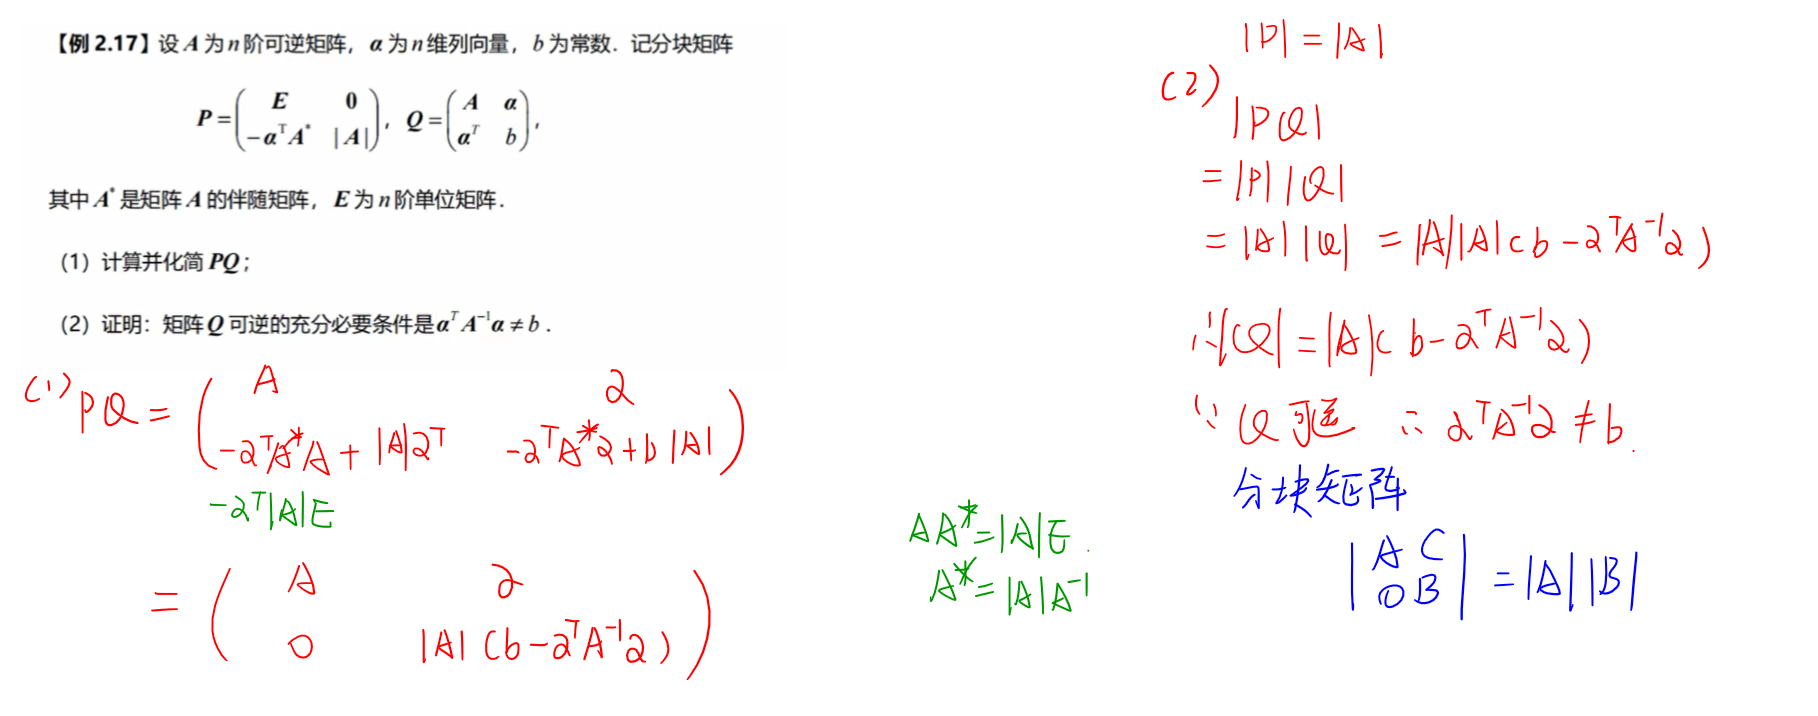 【例 2.17】设 A 为 n 阶可逆矩阵，α 为 n 维列向量，b 为常数．记分块矩阵
P = ( E 0 ; -αᵀA* |A| )，Q = ( A α ; αᵀ b )，
其中 A* 是矩阵 A 的伴随矩阵，E 为 n 阶单位矩阵．
（1）计算并化简 PQ；
（2）证明：矩阵 Q 可逆的充分必要条件是 αᵀA⁻¹α ≠ b．
(1) PQ = ( A 2 ; -2ᵀA*A + |A|2ᵀ -2ᵀA*2 + b|A| )
-2ᵀ|A|E
= ( A 2 ; 0 |A|(b-2ᵀA⁻¹2) )
AA* = |A|E.
A* = |A|A⁻¹
|P| = |A|
(2)
|PQ|
= |P||Q|
= |A||Q| = |A||A|(b-2ᵀA⁻¹2)
∴|Q| = |A|(b-2ᵀA⁻¹2)
∵ Q可逆 ∴ 2ᵀA⁻¹2 ≠ b.
分块矩阵
| A C ; O B | = |A||B|